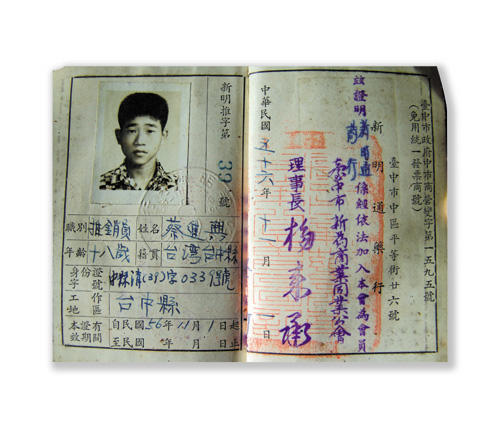 臺中市政府中市商營變字第一五九五號
(免用統一發票商號)
臺中市中區平等街廿六號
新明通藥行
茲證明
係經依法加入本會為會員
臺中市新藥商業同業公會
理事長
中華民國五十六年十一月一日
新明推字第39號
職別 推銷員 姓名 蔡進興
年齡 十八歲 籍貫 台灣台中縣
身份證字號
工作地區 台中縣
本證有效期間 自民國56年11月1日起
至民國 年 月 日止